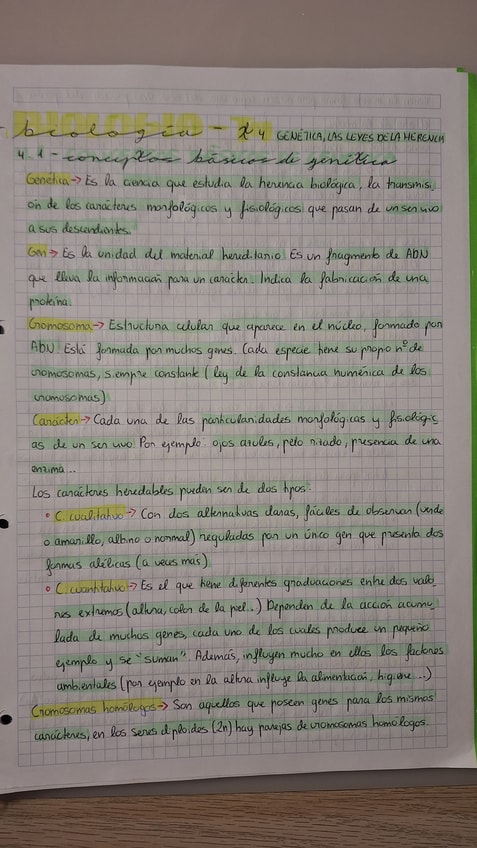 biología - T4 GENÉTICA, LAS LEYES DE LA HERENCIA
4.1 - conceptos básicos de genética
Genética → Es la ciencia que estudia la herencia biológica, la transmisi
ón de los carácteres morfológicos y fisiológicos que pasan de un ser vivo
a sus descendientes.
Gen → Es la unidad del material hereditario. Es un fragmento de ADN
que lleva la información para un carácter. Indica la fabricación de una
proteína.
Cromosoma → Estructura celular que aparece en el núcleo, formado por
ADN. Está formada por muchos genes. Cada especie tiene su propio nº de
cromosomas, siempre constante (ley de la constancia numérica de los
cromosomas)
Carácter → Cada una de las particularidades morfológicas y fisiológic
as de un ser vivo. Por ejemplo: ojos azules, pelo rizado, presencia de una
enzima...
Los carácteres heredables pueden ser de dos tipos:
• C. cualitativo → Con dos alternativas claras, fáciles de observar (verde
o amarillo, albino o normal) reguladas por un único gen que presenta dos
formas alélicas (a veces más).
• C. cuantitativo → Es el que tiene diferentes graduaciones entre dos valo
res extremos (altura, color de la piel...) Dependen de la acción acumu
lada de muchos genes, cada uno de los cuales produce un pequeño
ejemplo y se "suman". Además, influyen mucho en ellos los factores
ambientales (por ejemplo en la altura influye la alimentación, higiene...)
Cromosomas homólogos → Son aquellos que poseen genes para los mismos
carácteres, en los seres diploides (2n) hay parejas de cromosomas homólogos.